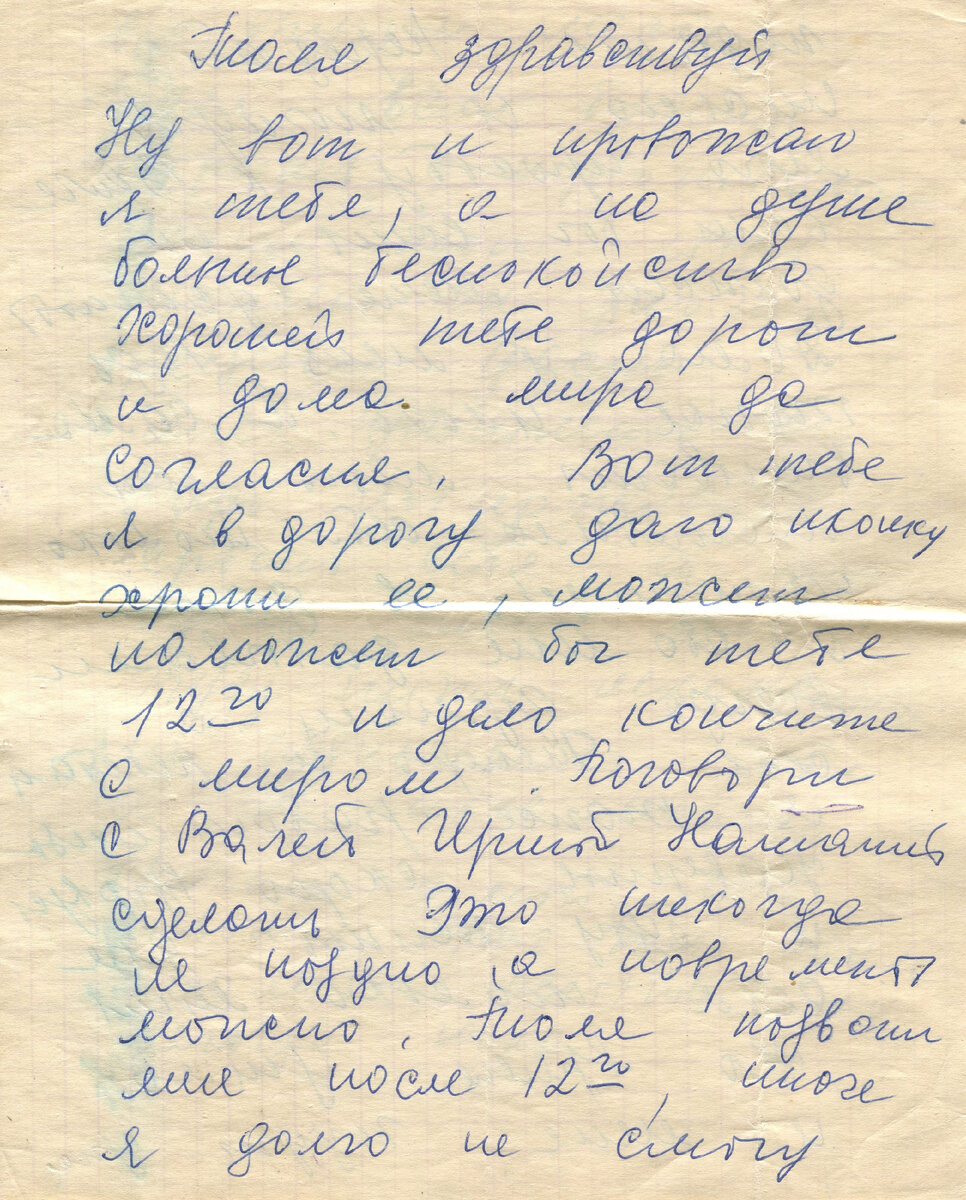 Толя здравствуй
Ну вот и провожаю
я тебя, а на душе
большое беспокойство
Хорошей тебе дороги
и дома мира да
согласия. Вот тебе
я в дорогу даю иконку
храни ее, может
поможет бог тебе
12го и дело кончите
с миром. Поговори
с Валей Ириной Наташей
сделать это никогда
не поздно, а повременить
можно. Толя позвони
мне после 12го, иначе
я долго не смогу